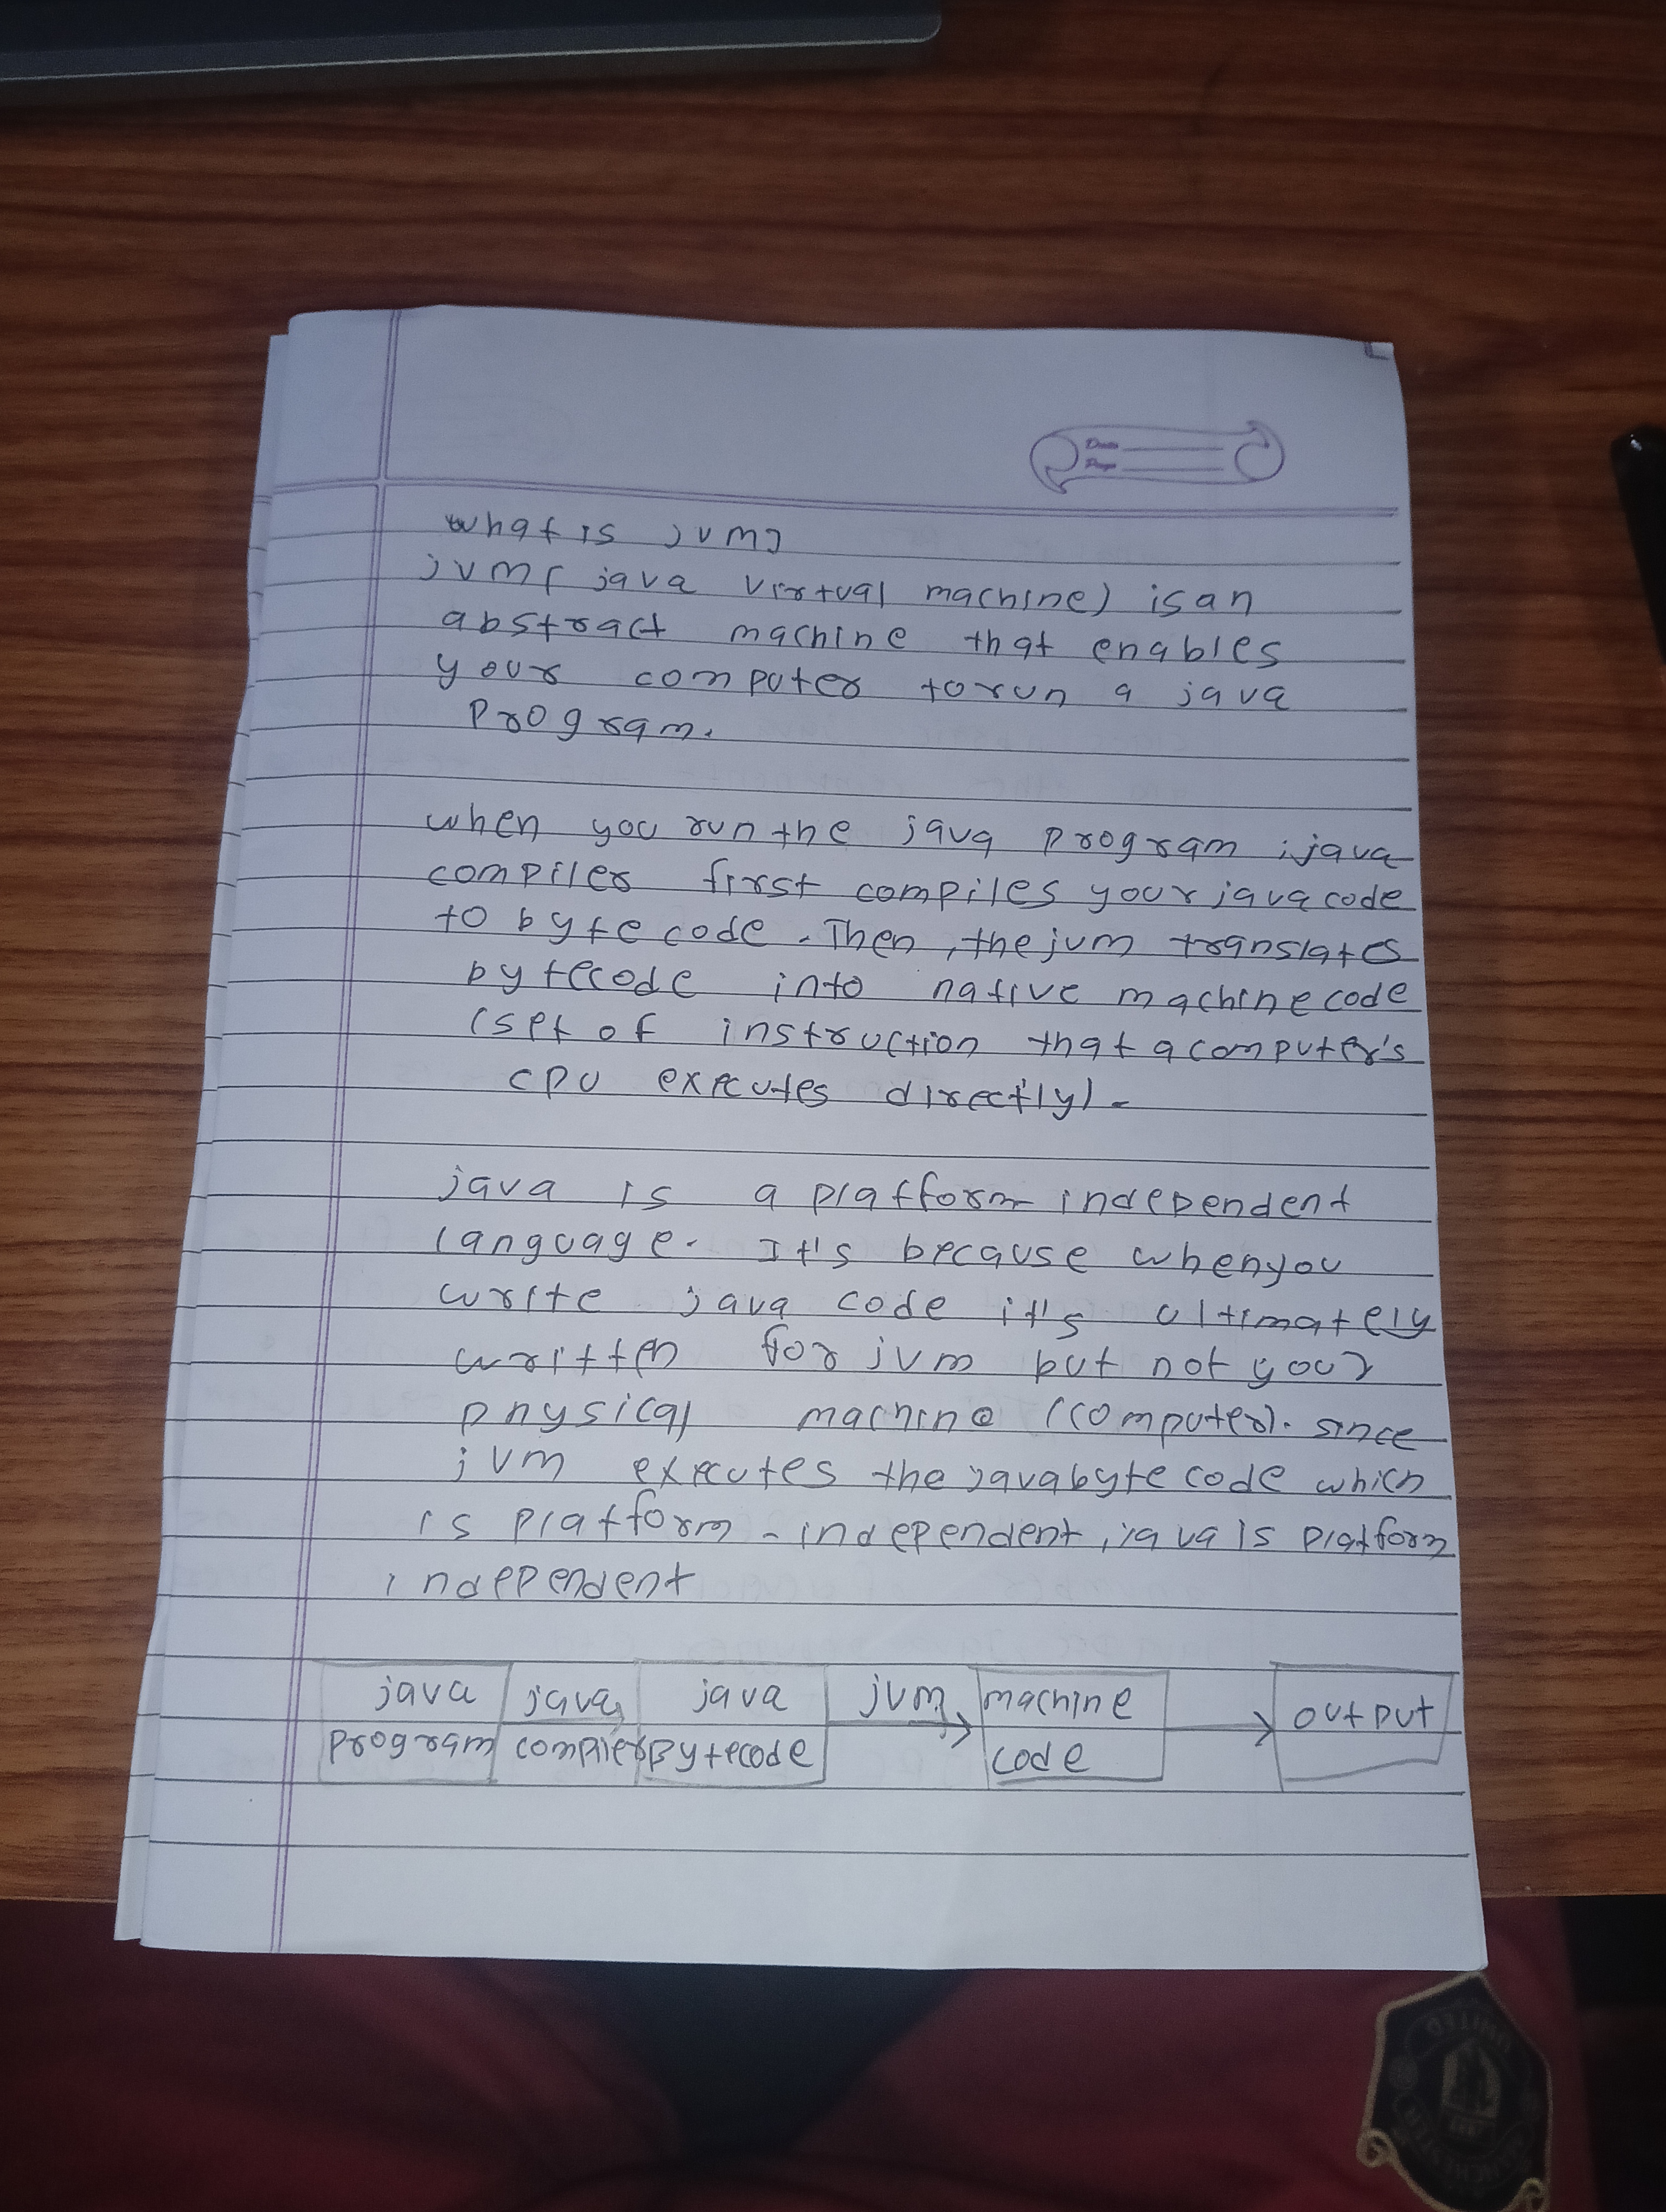 Date
Page
what is jvm?
jvm( java virtual machine) is an
abstract machine that enables
your computer to run a java
program.
when you run the java program, java
compiler first compiles your java code
to byte code. Then, the jvm translates
bytecode into native machine code
(set of instruction that a computer's
cpu executes directly).
java is a platform independent
language. It's because when you
write java code it's ultimately
written for jvm but not your
physical machine (computer). since
jvm executes the java byte code which
is platform-independent, java is platform
independent
java java java jvm machine output
program compiler Bytecode code
UNITED